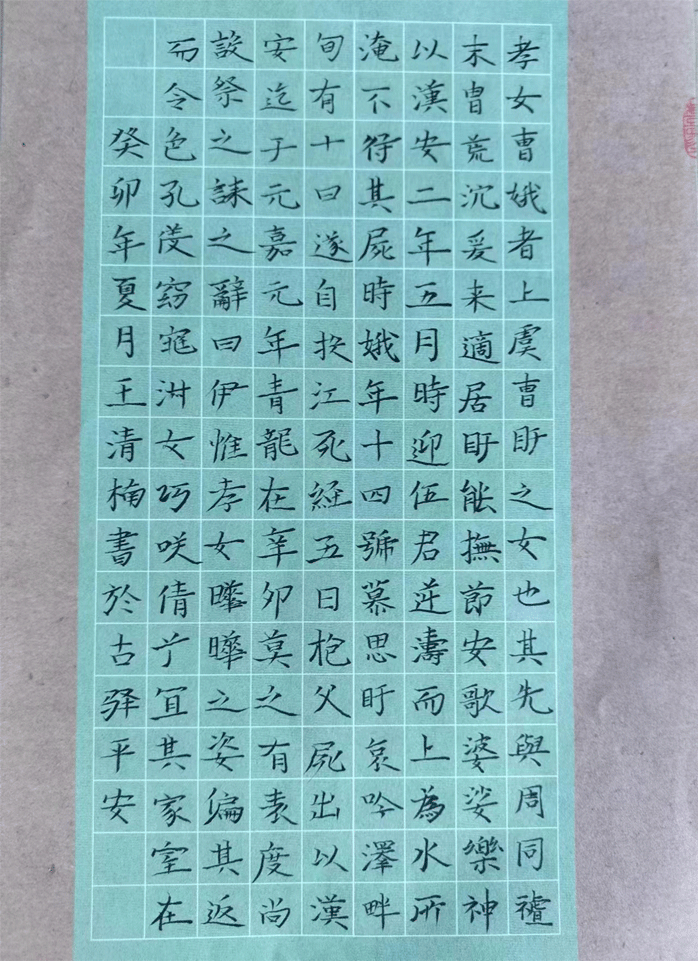 孝女曹娥者上虞曹盱之女也其先與周同禮
末胄荒沉爰来適居盱能撫節安歌婆娑樂神
以漢安二年五月時迎伍君逆濤而上為水所
淹不得其屍時娥年十四號慕思盱哀吟澤畔
旬有十日遂自投江死経五日抱父屍出以漢
安迄于元嘉元年青龍在辛卯莫之有表度尚
設祭之誄之辭曰伊惟孝女曄曄之姿偏其返
而令色孔ం窈窕淑女巧咲倩兮宜其家室在
癸卯年夏月王清楠書於古驿平安